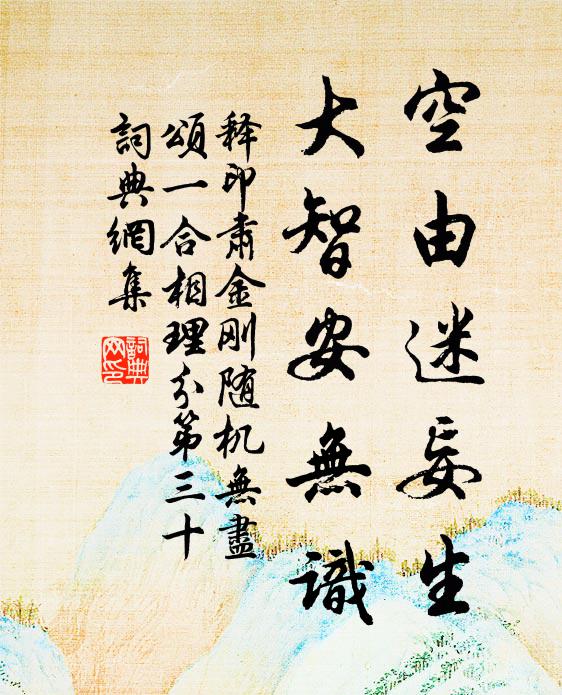 空由迷妄生
大智安無識
释印肃金刚随机無盡
頌一合相理分第三十
詞典網集
詞典網印